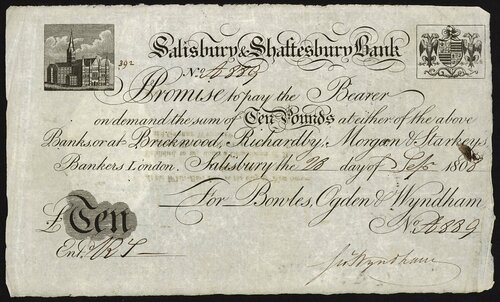 Salisbury & Shaftesbury Bank
392
No. A889
I Promise to pay the Bearer
on demand the sum of Ten Pounds at either of the above
Banks or at Brickwood, Richardby, Morgan & Starkeys
Bankers London. Salisbury the 28 day of Sep 1808
For Bowles, Ogden & Wyndham
£ Ten
No. A889
Entd.
Wyndham